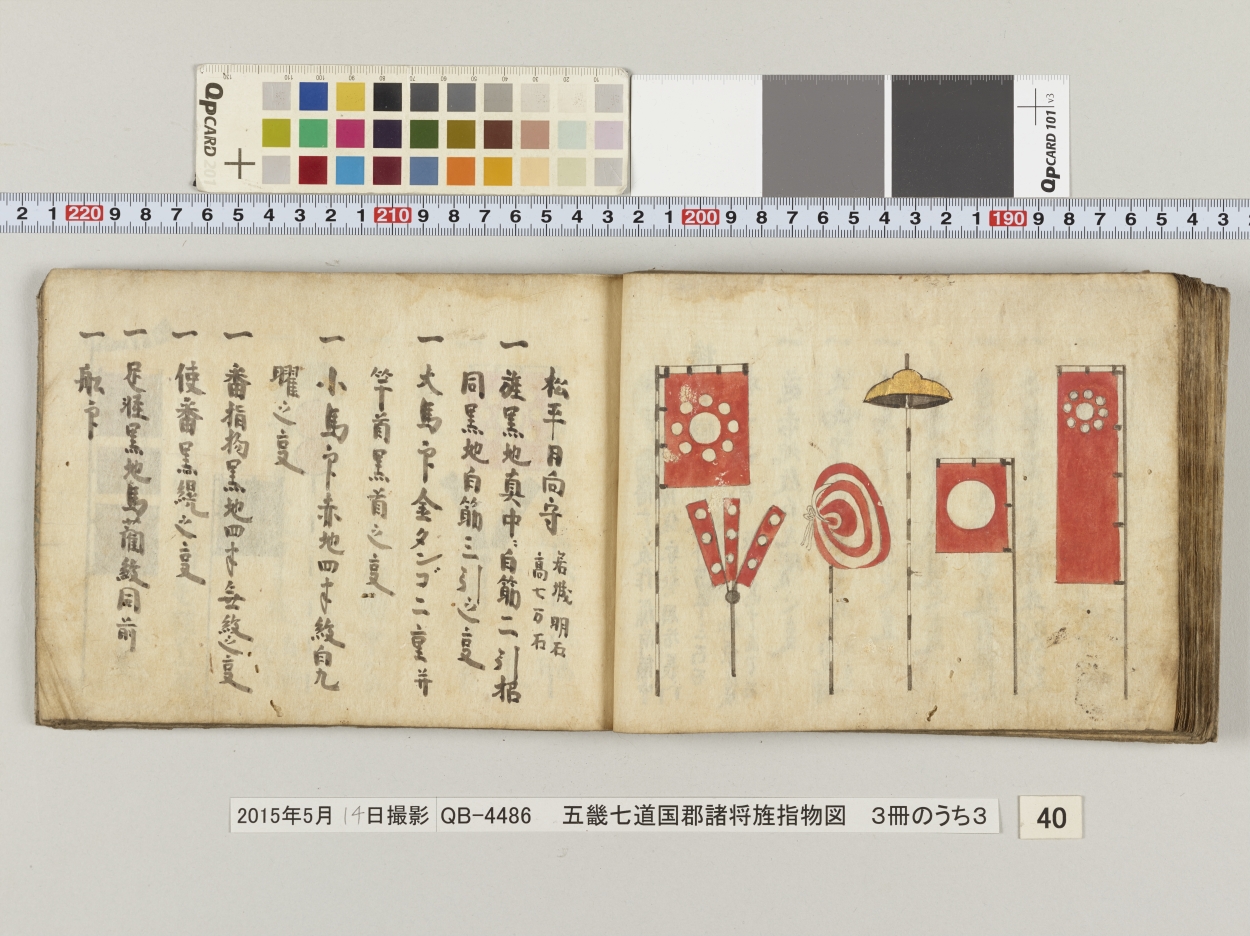 QPCARD 201
QPCARD 101 v3
2 1 220 9 8 7 6 5 4 3 2 1 210 9 8 7 6 5 4 3 2 1 200 9 8 7 6 5 4 3 2 1 190 9 8 7 6 5 4 3
松平日向守 居城明石
高七万石
一 旌黒地真中ニ白筋二引招
同黒地白筋三引之
一 大馬印金タンゴ二重并
竿首黒首之
一 小馬印赤地四半紋白九
曜之
一 番指物黒地四半無紋之
一 使番黒縨之
一 足軽黒地馬藺紋同前
一 船印
2015年5月14日撮影 QB-4486 五畿七道国郡諸将旌指物図 3冊のうち3
40